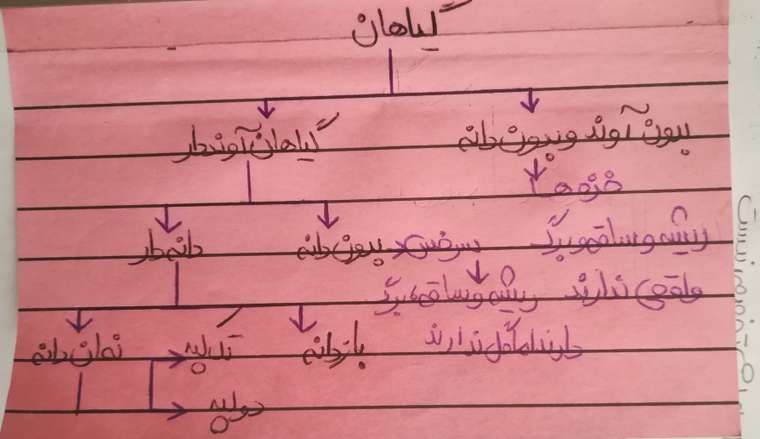 گیاهان
بدون آوند و بدون دانه
گیاهان آونددار
خزه ها
ریشه و ساقه و برگ
واقعی ندارند
بدون دانه
سرخس
دانه دار
ریشه و ساقه، برگ
دارند اما گل ندارند
بازدانه
تک لپه
نهان دانه
دولپه